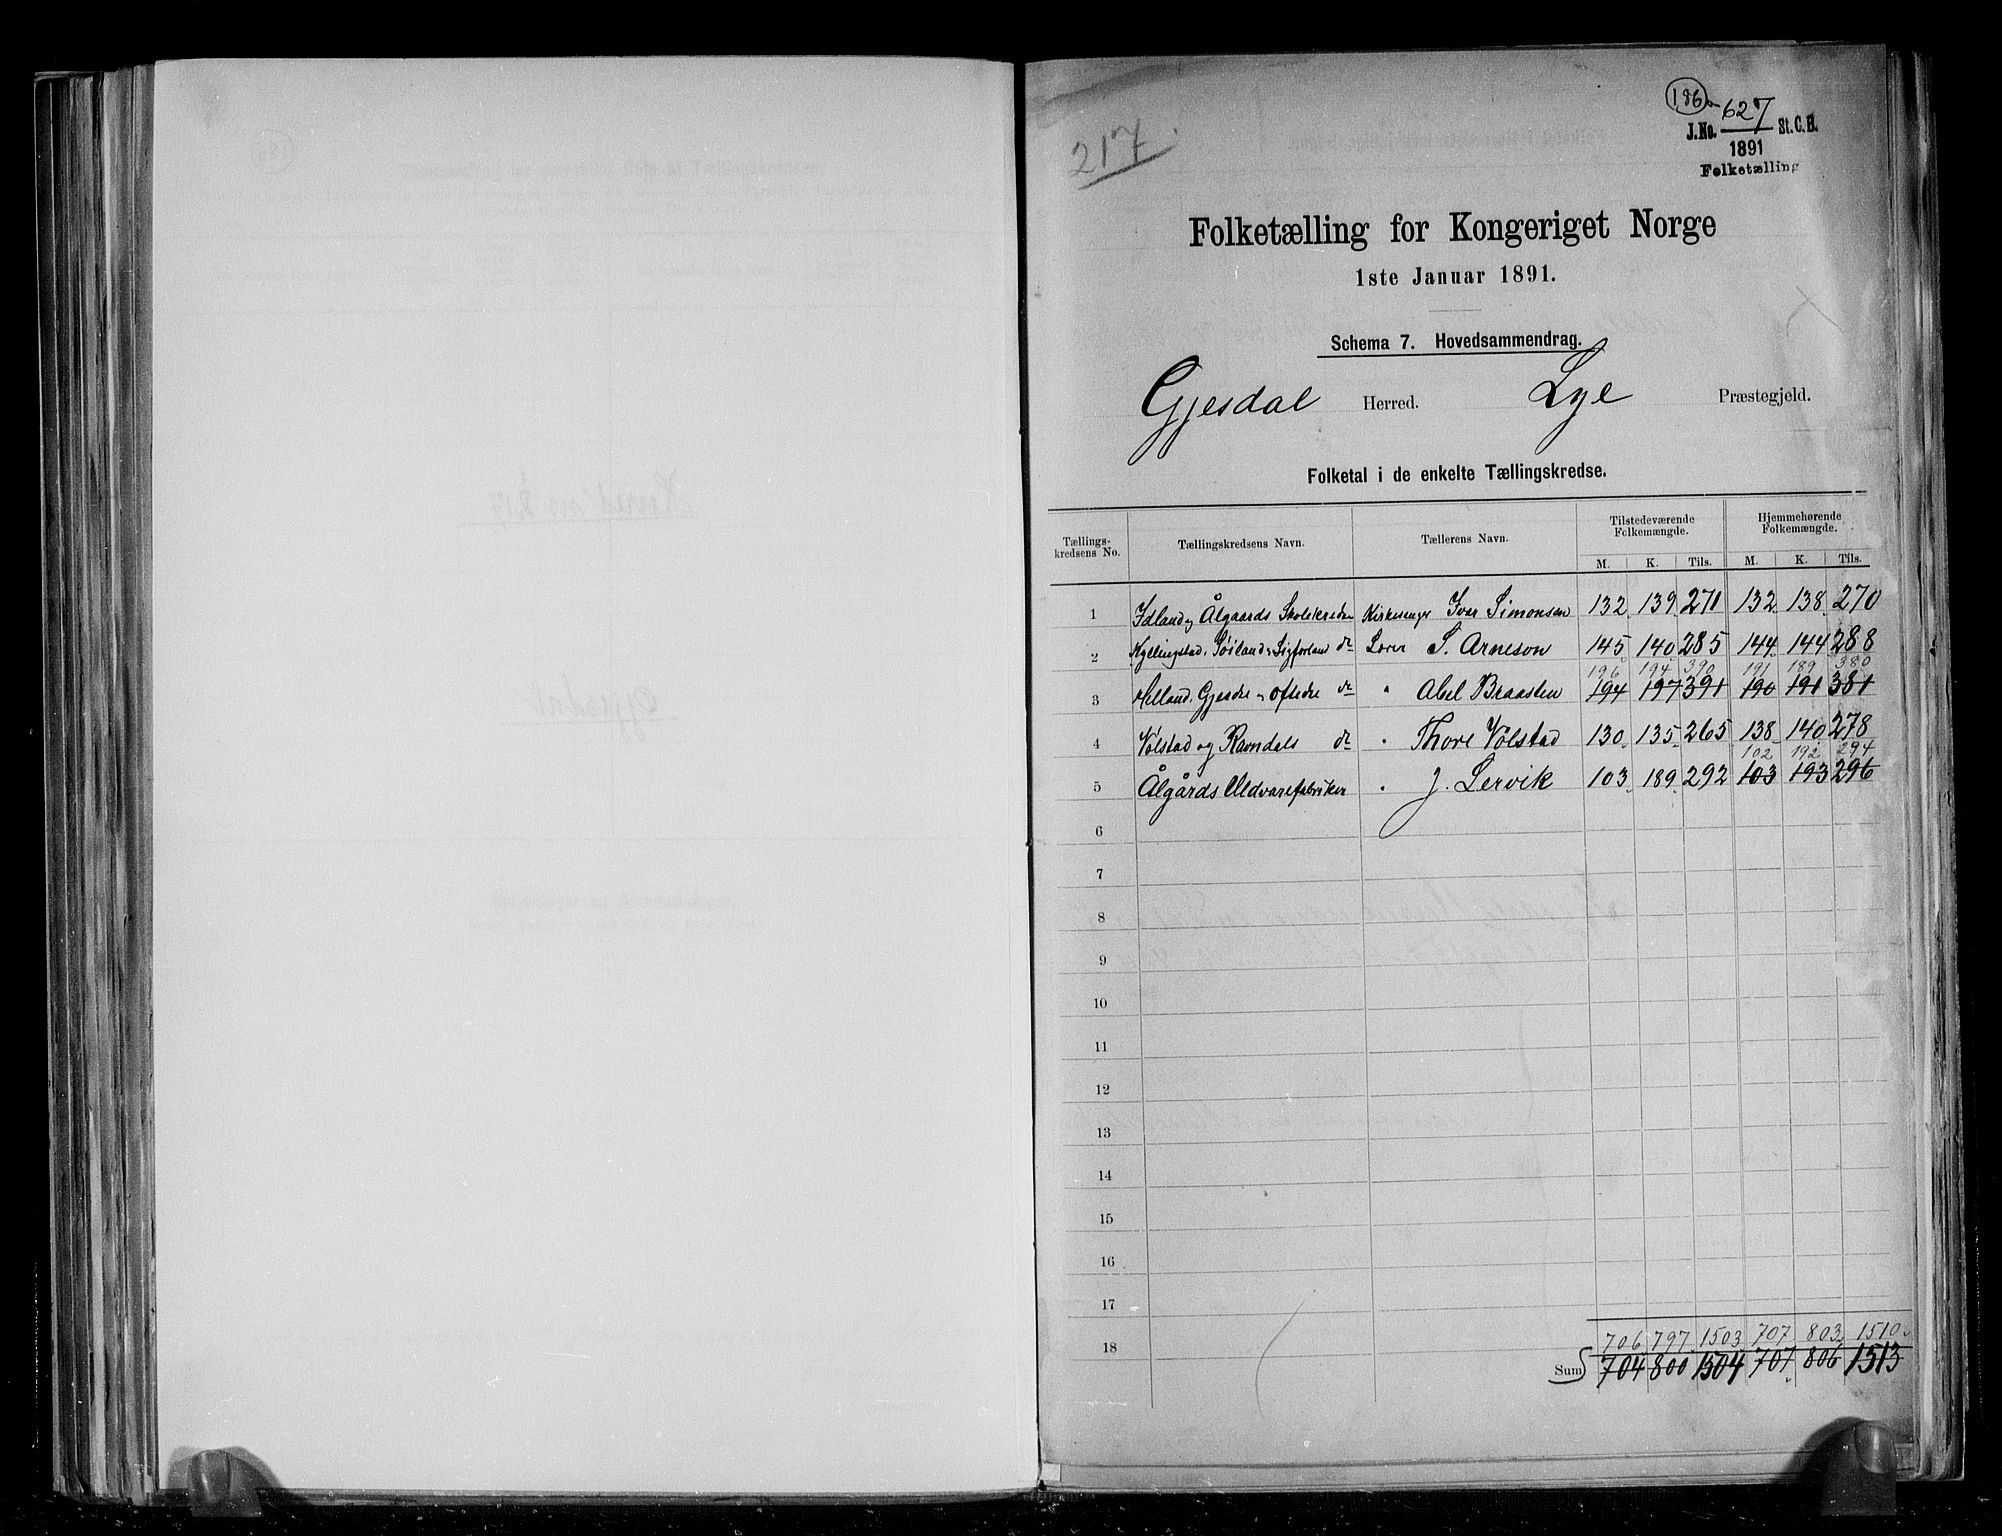 186
217.
J.No. 627 St. C. B.
1891
Folketælling
Folketælling for Kongeriget Norge
1ste Januar 1891.
Schema 7. Hovedsammendrag.
Gjesdal Herred. Lye Præstegjeld.
Folketal i de enkelte Tællingskredse.
Tællings-kredsens No. Tællingskredsens Navn. Tællerens Navn. Tilstedeværende Folkemængde. Hjemmehørende Folkemængde.
M. K. Tils. M. K. Tils.
1 Idland og Ålgaards Skolekredse Kirkesanger Ivar Simonsen 132 139 271 132 138 270
2 Kyllingstad, Söiland, Sigforland do Lærer S. Arneson 145 140 285 144 144 288
196 194 390 191 189 380
3 Helland, Gjesdre og Oftedre do " Abel Braasten 194 197 391 190 191 381
4 Vølstad og Ravndals do " Thore Vølstad 130 135 265 138 140 278
102 192 294
5 Ålgårds Uldvarefabriker " J. Lervik 103 189 292 103 193 296
6
7
8
9
10
11
12
13
14
15
16
17
706 797 1503 707 803 1510
18
Sum 704 800 1504 707 806 1513
Gjesdal